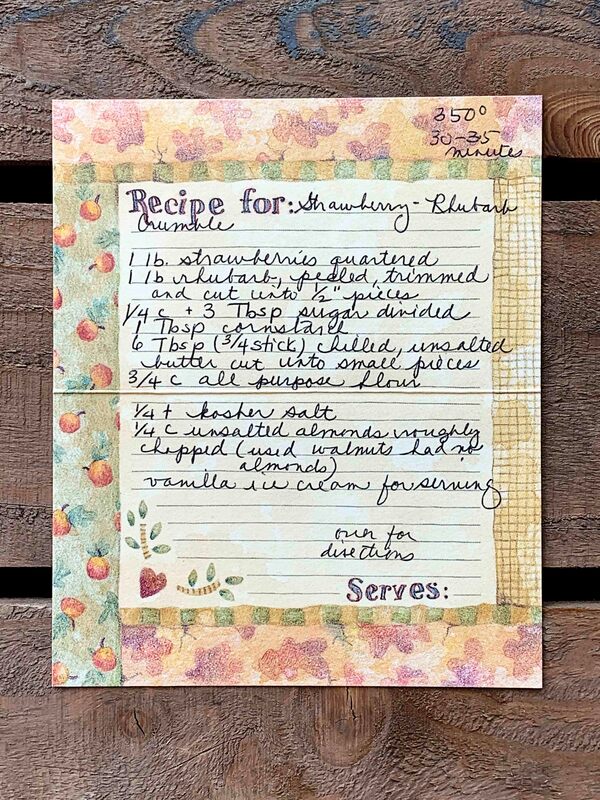 350°
30-35
minutes
Recipe for: Strawberry-Rhubarb
Crumble
1 lb. strawberries quartered
1 lb rhubarb, peeled, trimmed
and cut into 1/2" pieces
1/4 c + 3 Tbsp sugar divided
1 Tbsp cornstarch
6 Tbsp (3/4 stick) chilled, unsalted
butter cut into small pieces
3/4 c all purpose flour
1/4 t kosher salt
1/4 c unsalted almonds roughly
chopped (used walnuts had no
almonds)
vanilla ice cream for serving
over for
directions
Serves: